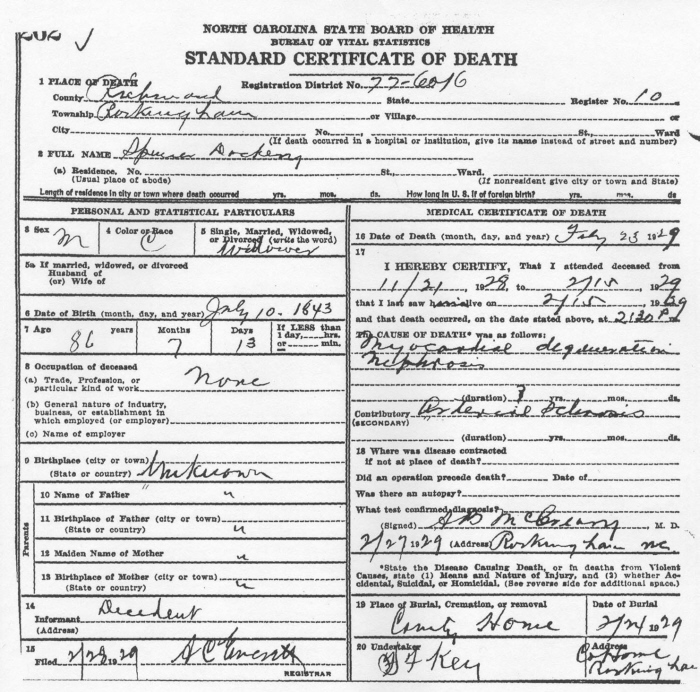 202 ✓
NORTH CAROLINA STATE BOARD OF HEALTH
BUREAU OF VITAL STATISTICS
STANDARD CERTIFICATE OF DEATH
1 PLACE OF DEATH Registration District No. 77-6016
County Richmond State Register No. 10
Township Rockingham or Village
City No. St., Ward
(If death occurred in a hospital or institution, give its name instead of street and number)
2 FULL NAME Spencer Dockery
(a) Residence. No. St., Ward.
(Usual place of abode) (If nonresident give city or town and State)
Length of residence in city or town where death occurred yrs. mos. ds. How long in U. S. if of foreign birth? yrs. mos. ds
PERSONAL AND STATISTICAL PARTICULARS
3 Sex 4 Color or Race 5 Single, Married, Widowed,
or Divorced (write the word)
M C Widower
5a If married, widowed, or divorced
Husband of
(or) Wife of
6 Date of Birth (month, day, and year) July 10- 1843
7 Age years Months Days If LESS than
1 day, hrs.
or min.
86 7 13
8 Occupation of deceased
(a) Trade, Profession, or
particular kind of work None
(b) General nature of industry,
business, or establishment in
which employed (or employer)
(c) Name of employer
9 Birthplace (city or town)
(State or country) Unknown
Parents
10 Name of Father " u
11 Birthplace of Father (city or town)
(State or country) u
12 Maiden Name of Mother u
13 Birthplace of Mother (city or town)
(State or country) u
14
Informant Decedent
(Address)
15
Filed 2/28 1929 A C Everett
REGISTRAR
MEDICAL CERTIFICATE OF DEATH
16 Date of Death (month, day, and year) Feby 23 1929
17
I HEREBY CERTIFY, That I attended deceased from
11/21, 1928, to 2/15, 1929
that I last saw h alive on 2/15, 1929
and that death occurred, on the date stated above, at 2:30 P m.
The CAUSE OF DEATH* was as follows:
Myocardial degeneration
Nephrosis
(duration) ? yrs. mos. ds.
Contributory Arterial Sclerosis
(SECONDARY)
(duration) yrs. mos. ds.
18 Where was disease contracted
if not at place of death?
Did an operation precede death? Date of
Was there an autopsy?
What test confirmed diagnosis?
(Signed) McCreary, M. D.
2/27 1929 (Address) Rockingham NC
*State the Disease Causing Death, or in deaths from Violent
Causes, state (1) Means and Nature of Injury, and (2) whether Ac-
cidental, Suicidal, or Homicidal. (See reverse side for additional space.)
19 Place of Burial, Cremation, or removal Date of Burial
County Home 2/24 1929
20 Undertaker Address
Key Co Home
Rockingham